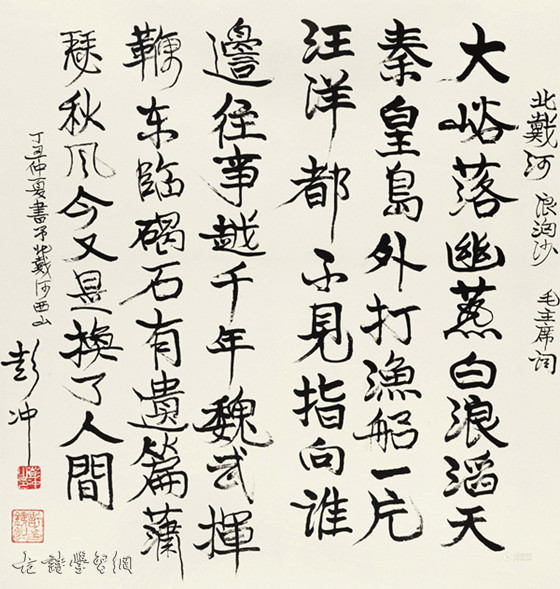 北戴河 浪淘沙 毛主席词
大峪落幽燕白浪滔天
秦皇島外打漁船一片
汪洋都不見指向谁
邊往事越千年魏武揮
鞭东臨碣石有遺篇蕭
瑟秋风今又是換了人間
丁丑仲夏書于北戴河西山
彭冲
詩學習網